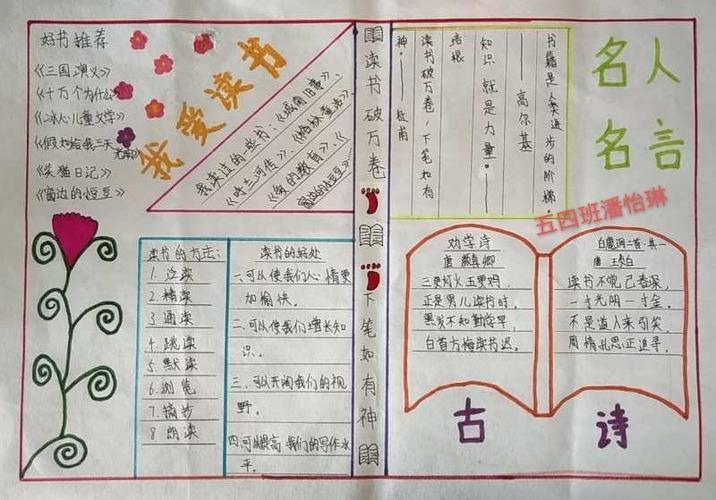 好书推荐
《三国演义》
《十万个为什么》
《冰心儿童文学》
《假如给我三天光明》
《笑猫日记》
《窗边的小豆豆》
我爱读书
我读过的些书：《城南旧事》、
《呼兰河传》、《格林童话》、
《狗的教育》、《窗边的小豆豆》
读书的方法：
1. 泛读
2. 精读
3 通读
4. 跳读
5 默读
6 浏览
7. 摘抄
8 朗读
读书的好处
一、可以使我们心情更
加愉快。
二、可以使我们增长知
识。
三、可以开阔我们的视
野。
四可以提高我们的写作水
平。
读书破万卷
下笔如有神
书籍是人类进步的阶梯。
——高尔基
知识就是力量。——
培根
读书破万卷，下笔如有
神。——杜甫
名人
名言
五四班潘怡琳
劝学诗
唐 颜真卿
三更灯火五更鸡，
正是男儿读书时，
黑发不知勤学早，
白首方悔读书迟。
白鹿洞二首·其一
唐 王贞白
读书不觉已春深，
一寸光阴一寸金。
不是道人来引笑，
周情孔思正追寻。
古诗